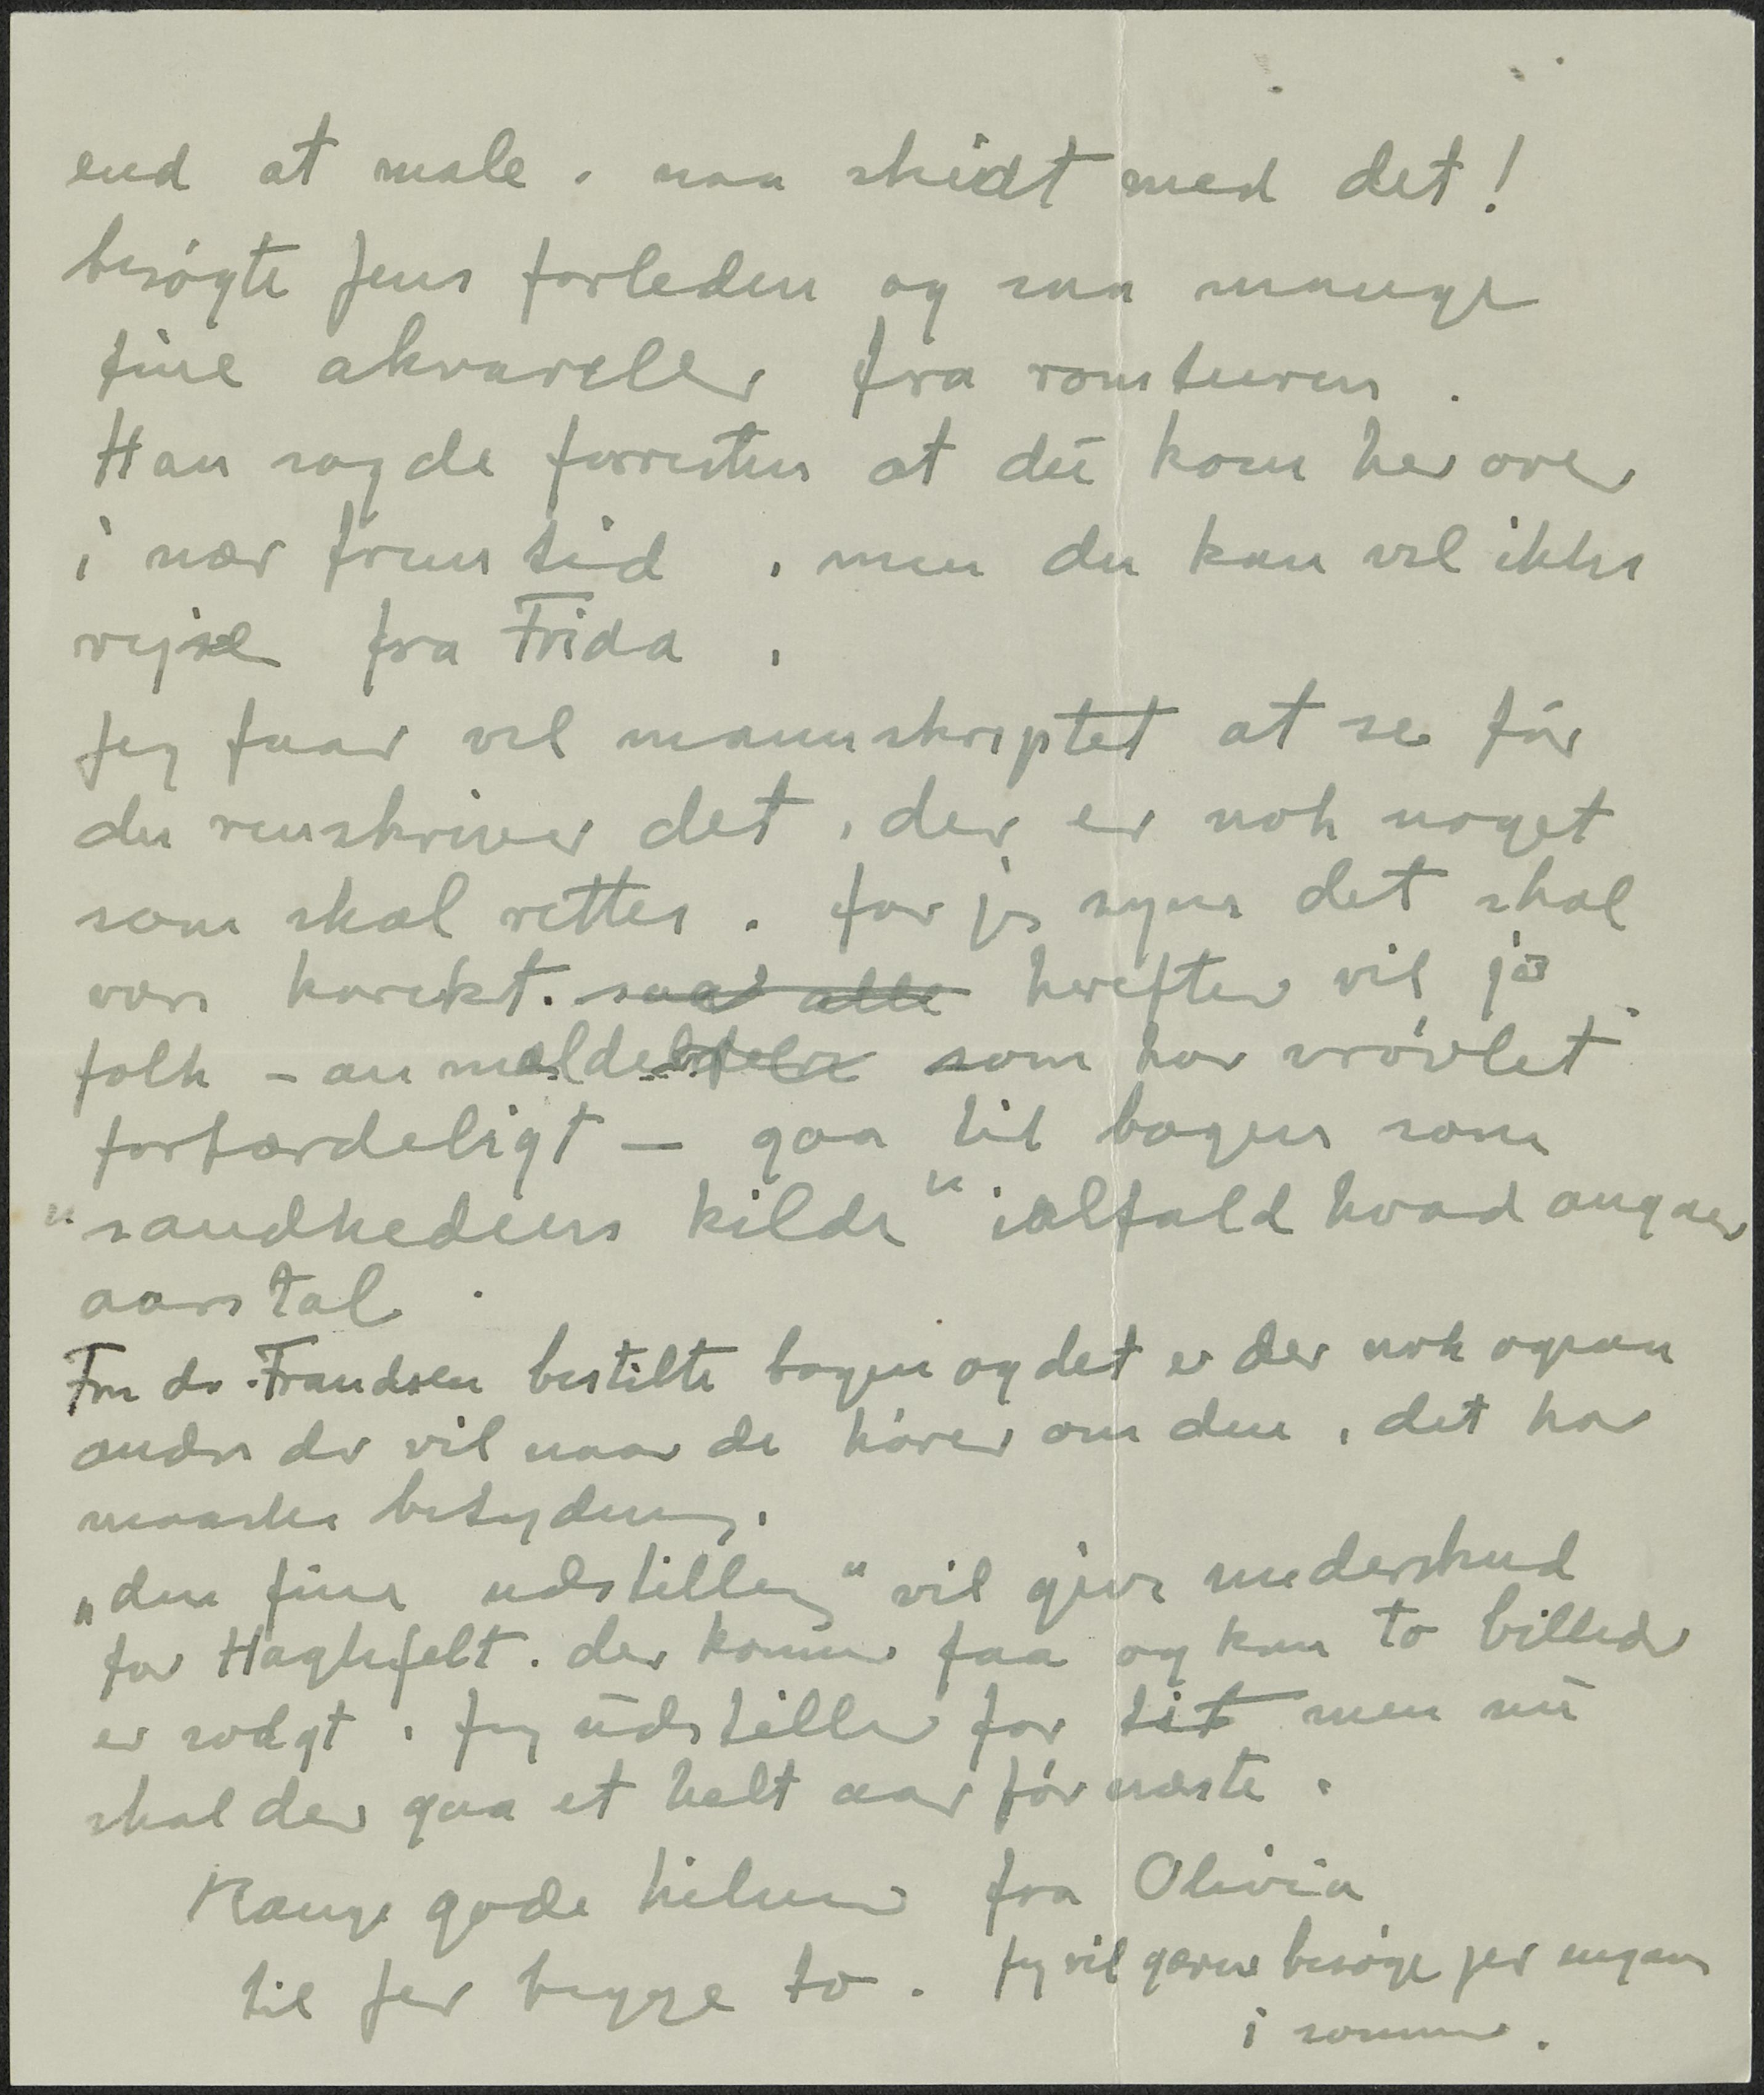 end at male. naa skidt med det!
besøgte Jens forleden og saa mange
fine akvareller fra romturen.
Han sagde forresten at du kom herover
i nær fremtid. men du kan vel ikke
rejse fra Frida.
Jeg faar vel manuskriptet at se før
du renskriver det, der er nok noget
som skal rettes. for jeg synes det skal
være korekt. saa alle herefter vil jo
folk - anmeldere som har vrøvlet
forfærdeligt - gaa til bogen som
"sandhedens kilde" ialfald hvad angaar
aarstal.
Fru dr. Frandsen bestilte bogen og det er der nok ogsaa
andre der vil naar de hører om den, det har
maaske betydning.
"den fine udstilling" vil give underskud
for Haghefelt. der kommer faa og kun to billeder
er solgt. Jeg udstiller for tit men nu
skal der gaa et helt aar før næste.
Mange gode hilsner fra Olivia
til Jer begge to. Jeg vil gerne besøge jer engang
i sommer.